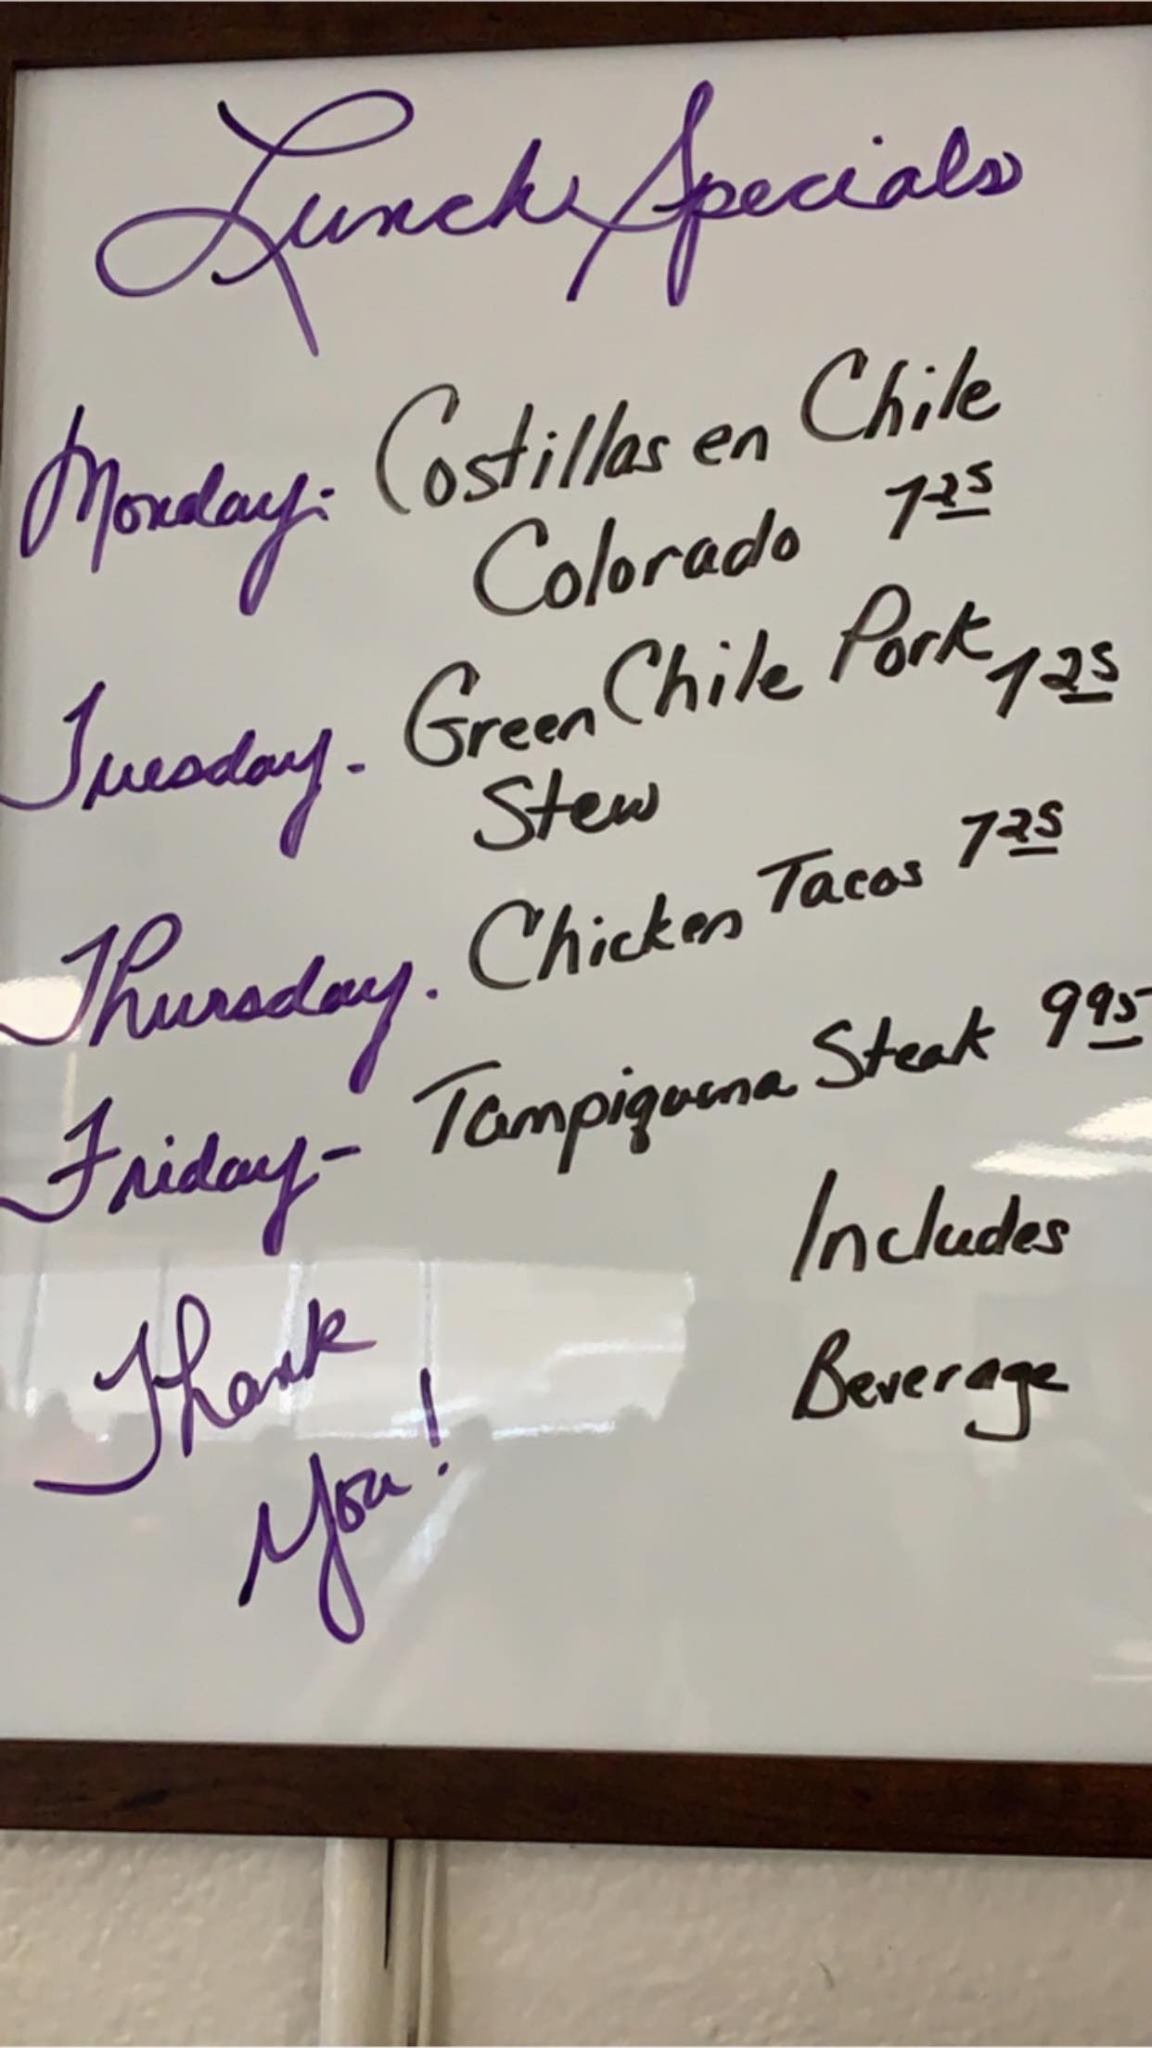 Lunch Specials
Monday: Costillas en Chile
Colorado 7 25
Tuesday. Green Chile Pork 7 25
Stew
Thursday. Chicken Tacos 7 25
Friday- Tampiquena Steak 9 95
Includes
Beverage
Thank
You!